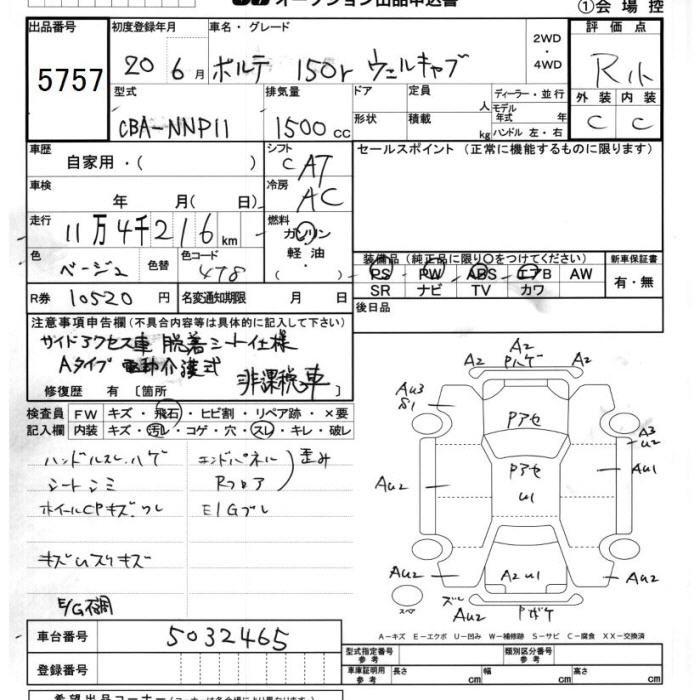 オークション出品申込書
①会場控
出品番号 5757
初度登録年月 20 6月
車名・グレード ポルテ 150r ウェルキャブ
2WD・4WD
評価点 R
外装 C 内装 C
型式 CBA-NNP11
排気量 1500cc
ドア 形状
定員 人
積載 kg
ディーラー・並行
モデル年式 年
ハンドル 左・右
車歴 自家用・( )
シフト C AT
セールスポイント (正常に機能するものに限ります)
車検 年 月( 日)
冷房 AC
走行 11万4千216km
燃料 ガソリン・軽油・( )
色 ベージュ 色替
色コード 4T8
装備品(純正品に限り○をつけてください)
PS PW ABS エアB AW
SR ナビ TV カワ
新車保証書 有・無
R券 10520円
名変通知期限 月 日
後日品
注意事項申告欄(不具合内容等は具体的に記入して下さい)
サイドアクセス車 脱着シート仕様
Aタイプ 電動介護式
非課税車
修復歴 有 [箇所
検査員記入欄
FW キズ・飛石・ヒビ割・リペア跡・×要
内装 キズ・汚レ・コゲ・穴・スレ・キレ・破レ
ハンドルスレ ハゲ
シートシミ
ホイールCPキズ ワレ
キズUスリキズ
E/G不調
エンドパネル
Rフロア
歪み
E/Gブレ
A2
A2 Pハゲ A2
Au3
S1
Pアセ
A3
u2
Pアセ
u1
Au1
Au2
Au2
A2 u1
Au2
Au2
Au2
スペア
A−キズ E−エクボ U−凹み W−補修跡 S−サビ C−腐食 XX−交換済
車台番号 5032465
登録番号
型式指定番号 参考
類別区分番号 参考
車庫証明用 参考 長さ cm 幅 cm 高さ cm
希望出品コーナー